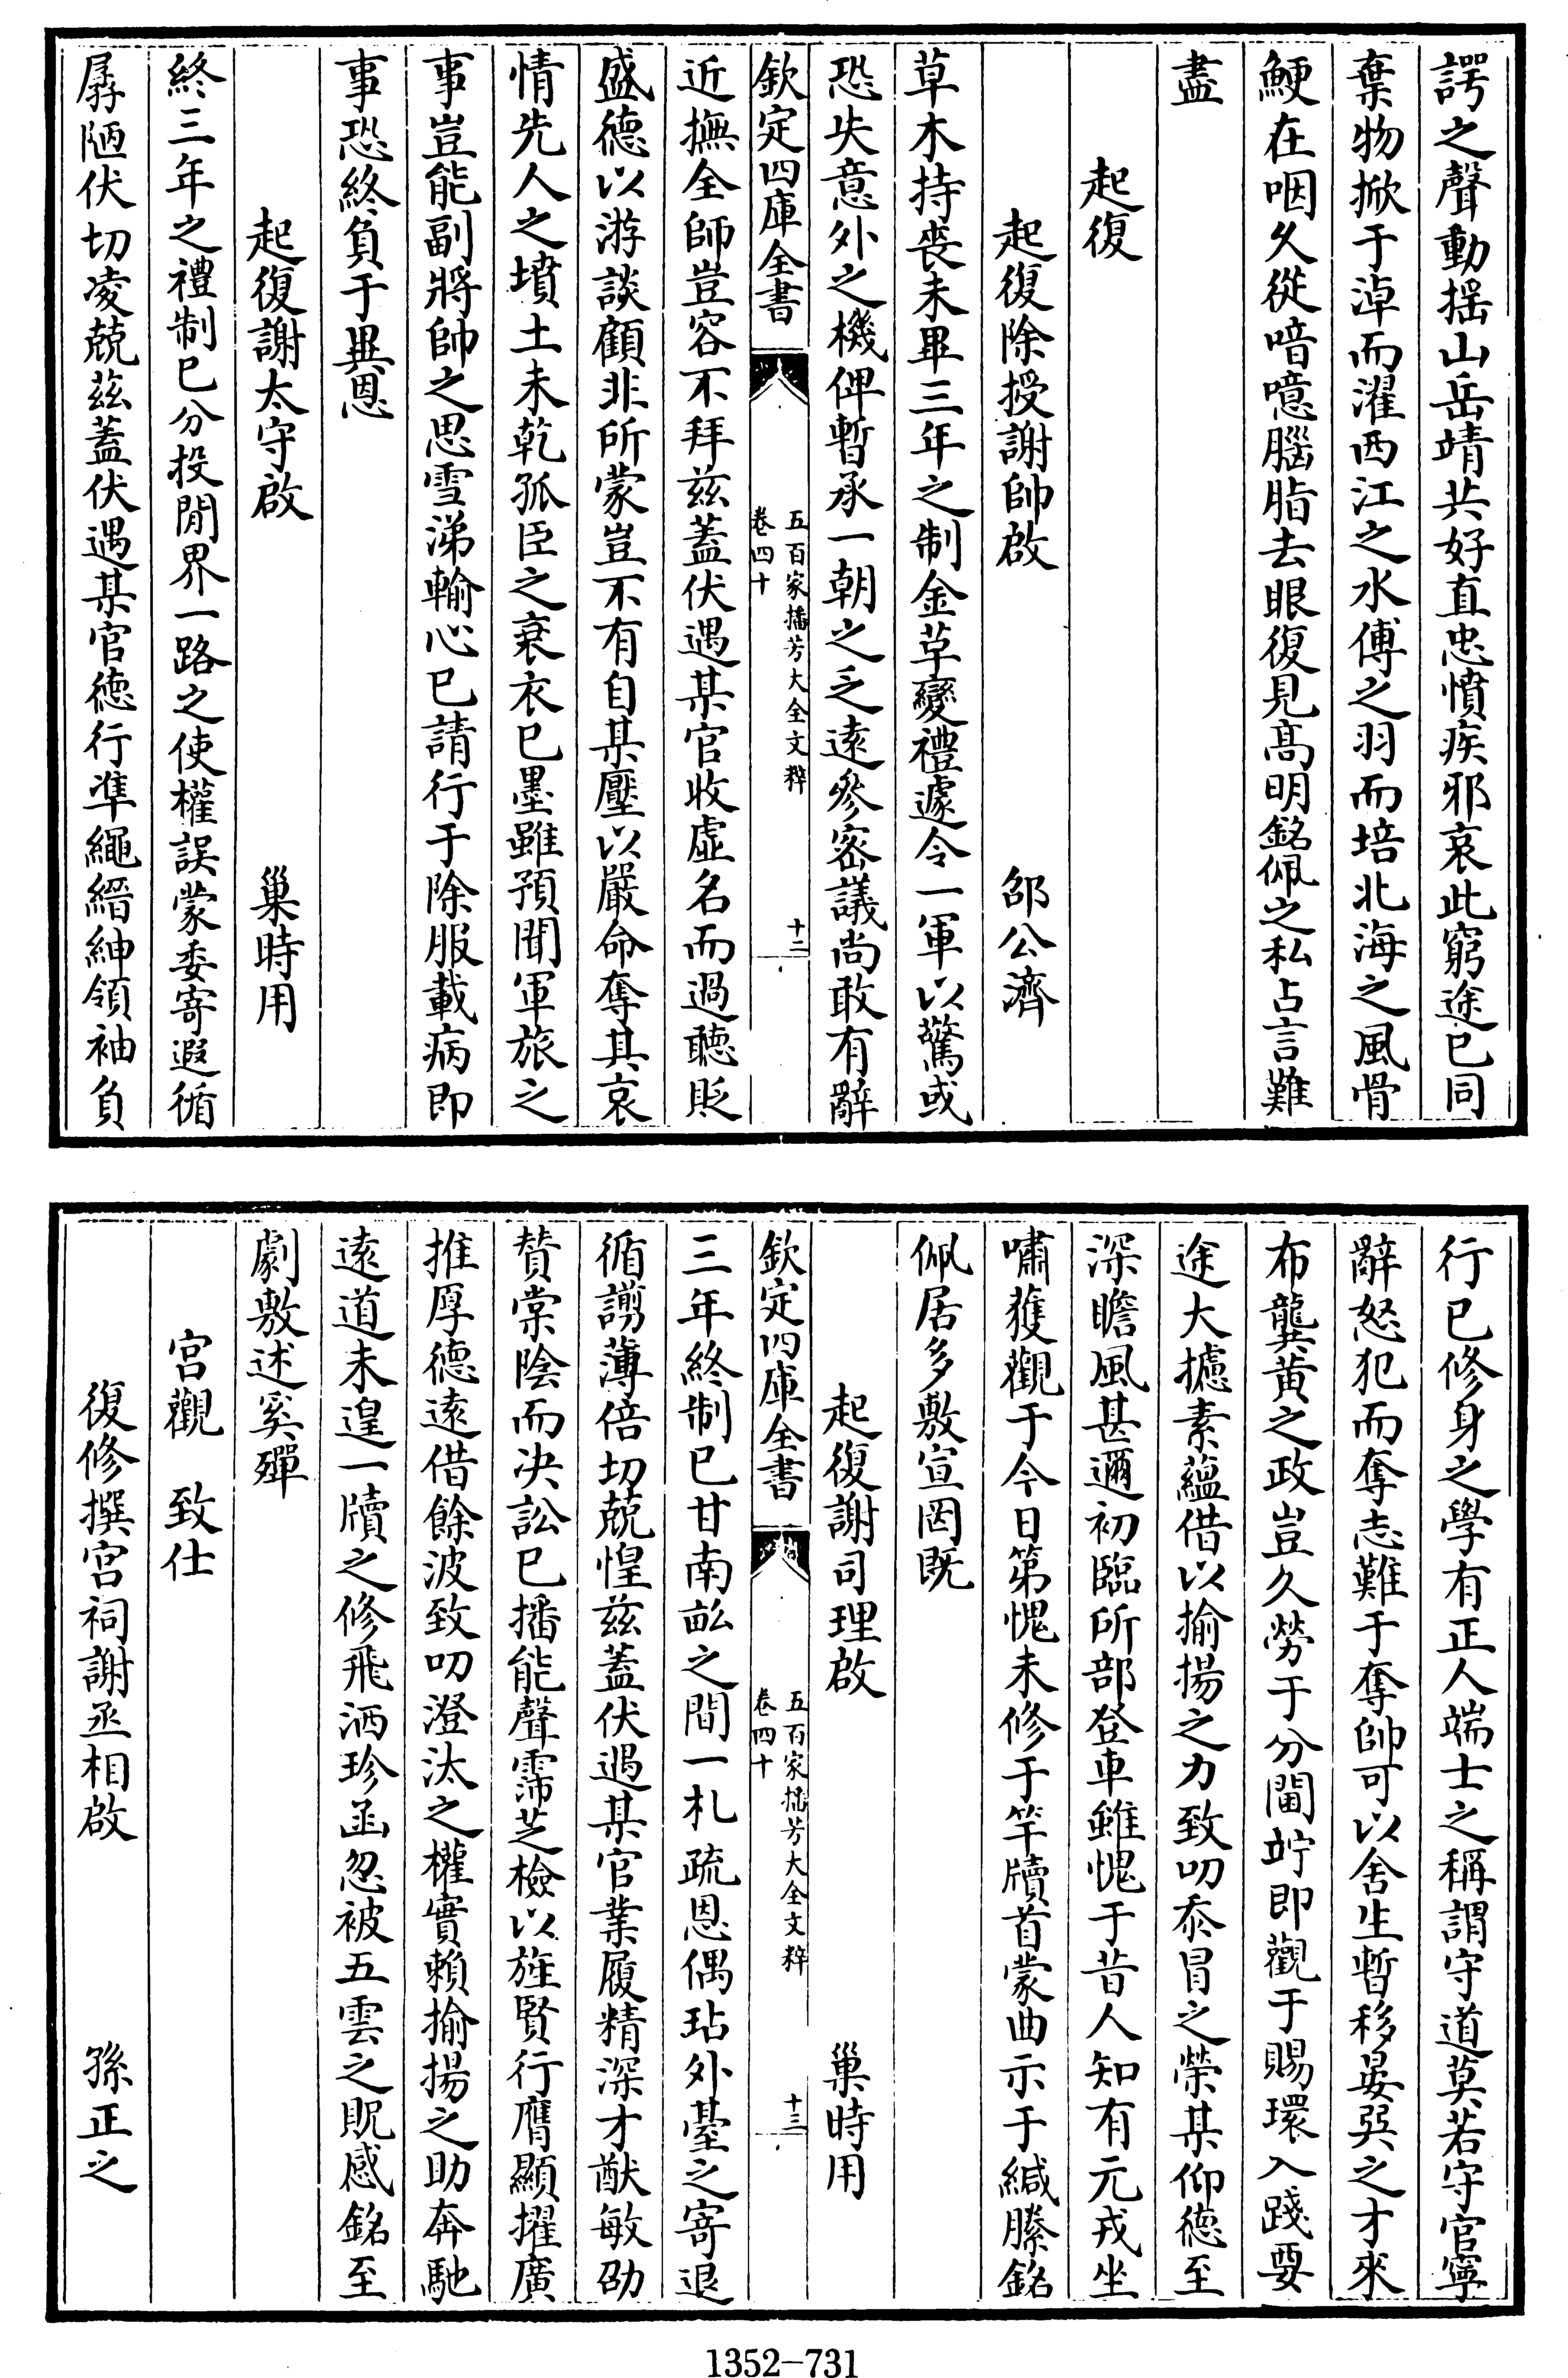 諤之聲動揺山岳靖共好直忠憤疾邪哀此窮途已同
棄物掀于淖而濯西江之水傅之羽而培北海之風骨
鯁在咽久從喑噫腦脂去眼復見髙明銘佩之私占言難
盡
起復
起復除授謝帥啟 邵公濟
草木持喪未畢三年之制金革變禮遽令一軍以驚或
恐失意外之機俾暫承一朝之乏逺參宻議尚敢有辭
欽定四庫全書 五百家播芳大全文粹 卷四十 十二
近撫全師豈容不拜兹葢伏遇某官收虚名而過聽貶
盛徳以游談顧非所蒙豈不有自某壓以嚴命奪其哀
情先人之墳土未乾孤臣之衰衣已墨雖預聞軍旅之
事豈能副將帥之思雪涕輸心已請行于除服載病即
事恐終負于畢恩
起復謝太守啟 巢時用
終三年之禮制已分投閒界一路之使權誤蒙委寄遐循
孱陋伏切凌兢兹蓋伏遇某官徳行凖繩縉紳領袖負
行已修身之學有正人端士之稱謂守道莫若守官寧
辭怒犯而奪志難于奪帥可以舍生暫移晏㢲之才來
布龔黄之政豈久勞于分閫竚即觀于賜環入踐要
途大攄素蘊借以揄揚之力致叨忝冒之榮某仰徳至
深瞻風甚邇初臨所部登車雖愧于昔人知有元戎坐
嘯獲觀于今日第愧未修于竿牘首蒙曲示于緘縢銘
佩居多敷宣罔既
起復謝司理啟 巢時用
欽定四庫全書 五百家播芳大全文粹 卷四十 十三
三年終制已甘南畝之間一札疏恩偶玷外䑓之寄退
循謭薄倍切兢惶兹蓋伏遇某官業履精深才猷敏劭
賛棠陰而決訟已播能聲霈芝檢以旌賢行膺顯擢廣
推厚德逺借餘波致叨澄汰之權實賴揄揚之助奔馳
逺道未遑一牘之修飛洒珍函忽被五雲之貺感銘至
劇敷述奚殫
宫觀 致仕
復修撰宫祠謝丞相啟 孫正之
1352-731